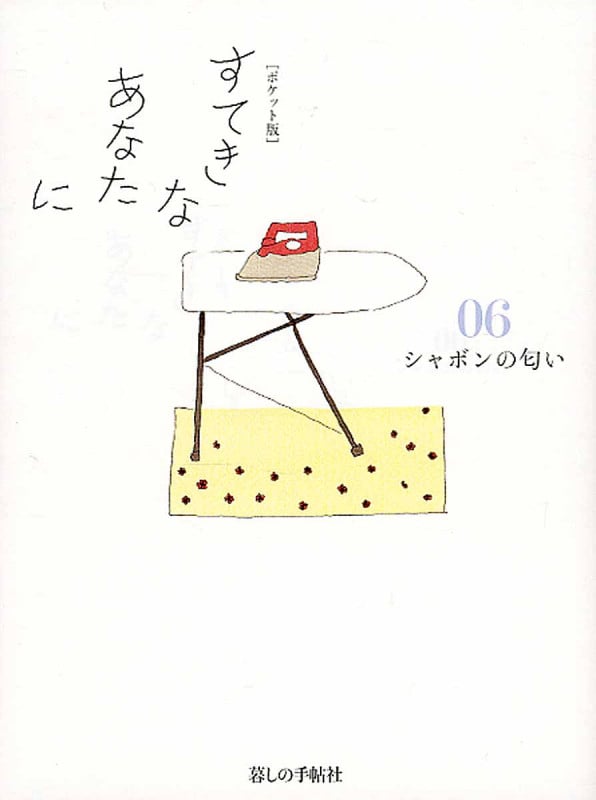 [ポケット版]
すてきな
あなたに
06
シャボンの匂い
暮しの手帖社